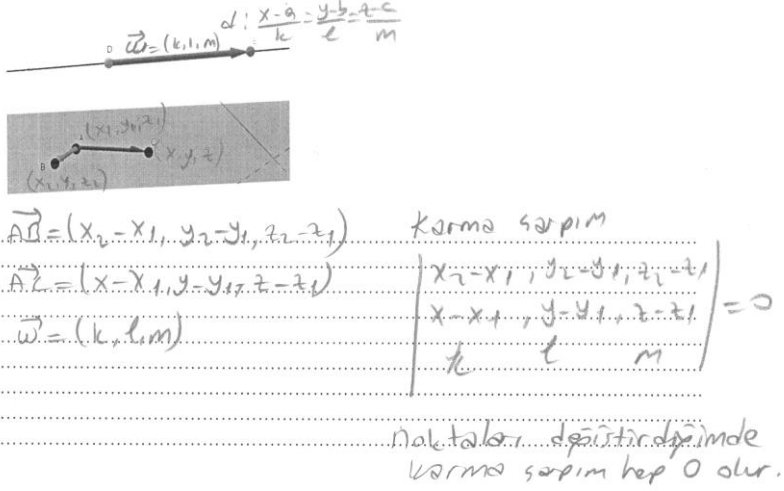 d: x-a/k = y-b/l = z-c/m
D w⃗=(k,l,m)
(x1,y1,z1)
B (x,y,z)
(x2,y2,z2)
AB⃗=(x2-x1, y2-y1, z2-z1)
AC⃗=(x-x1, y-y1, z-z1)
w⃗=(k,l,m)
Karma çarpım
|x2-x1, y2-y1, z2-z1|
|x-x1, y-y1, z-z1| =0
|k l m|
noktaları değiştirdiğimde
karma çarpım hep 0 olur.